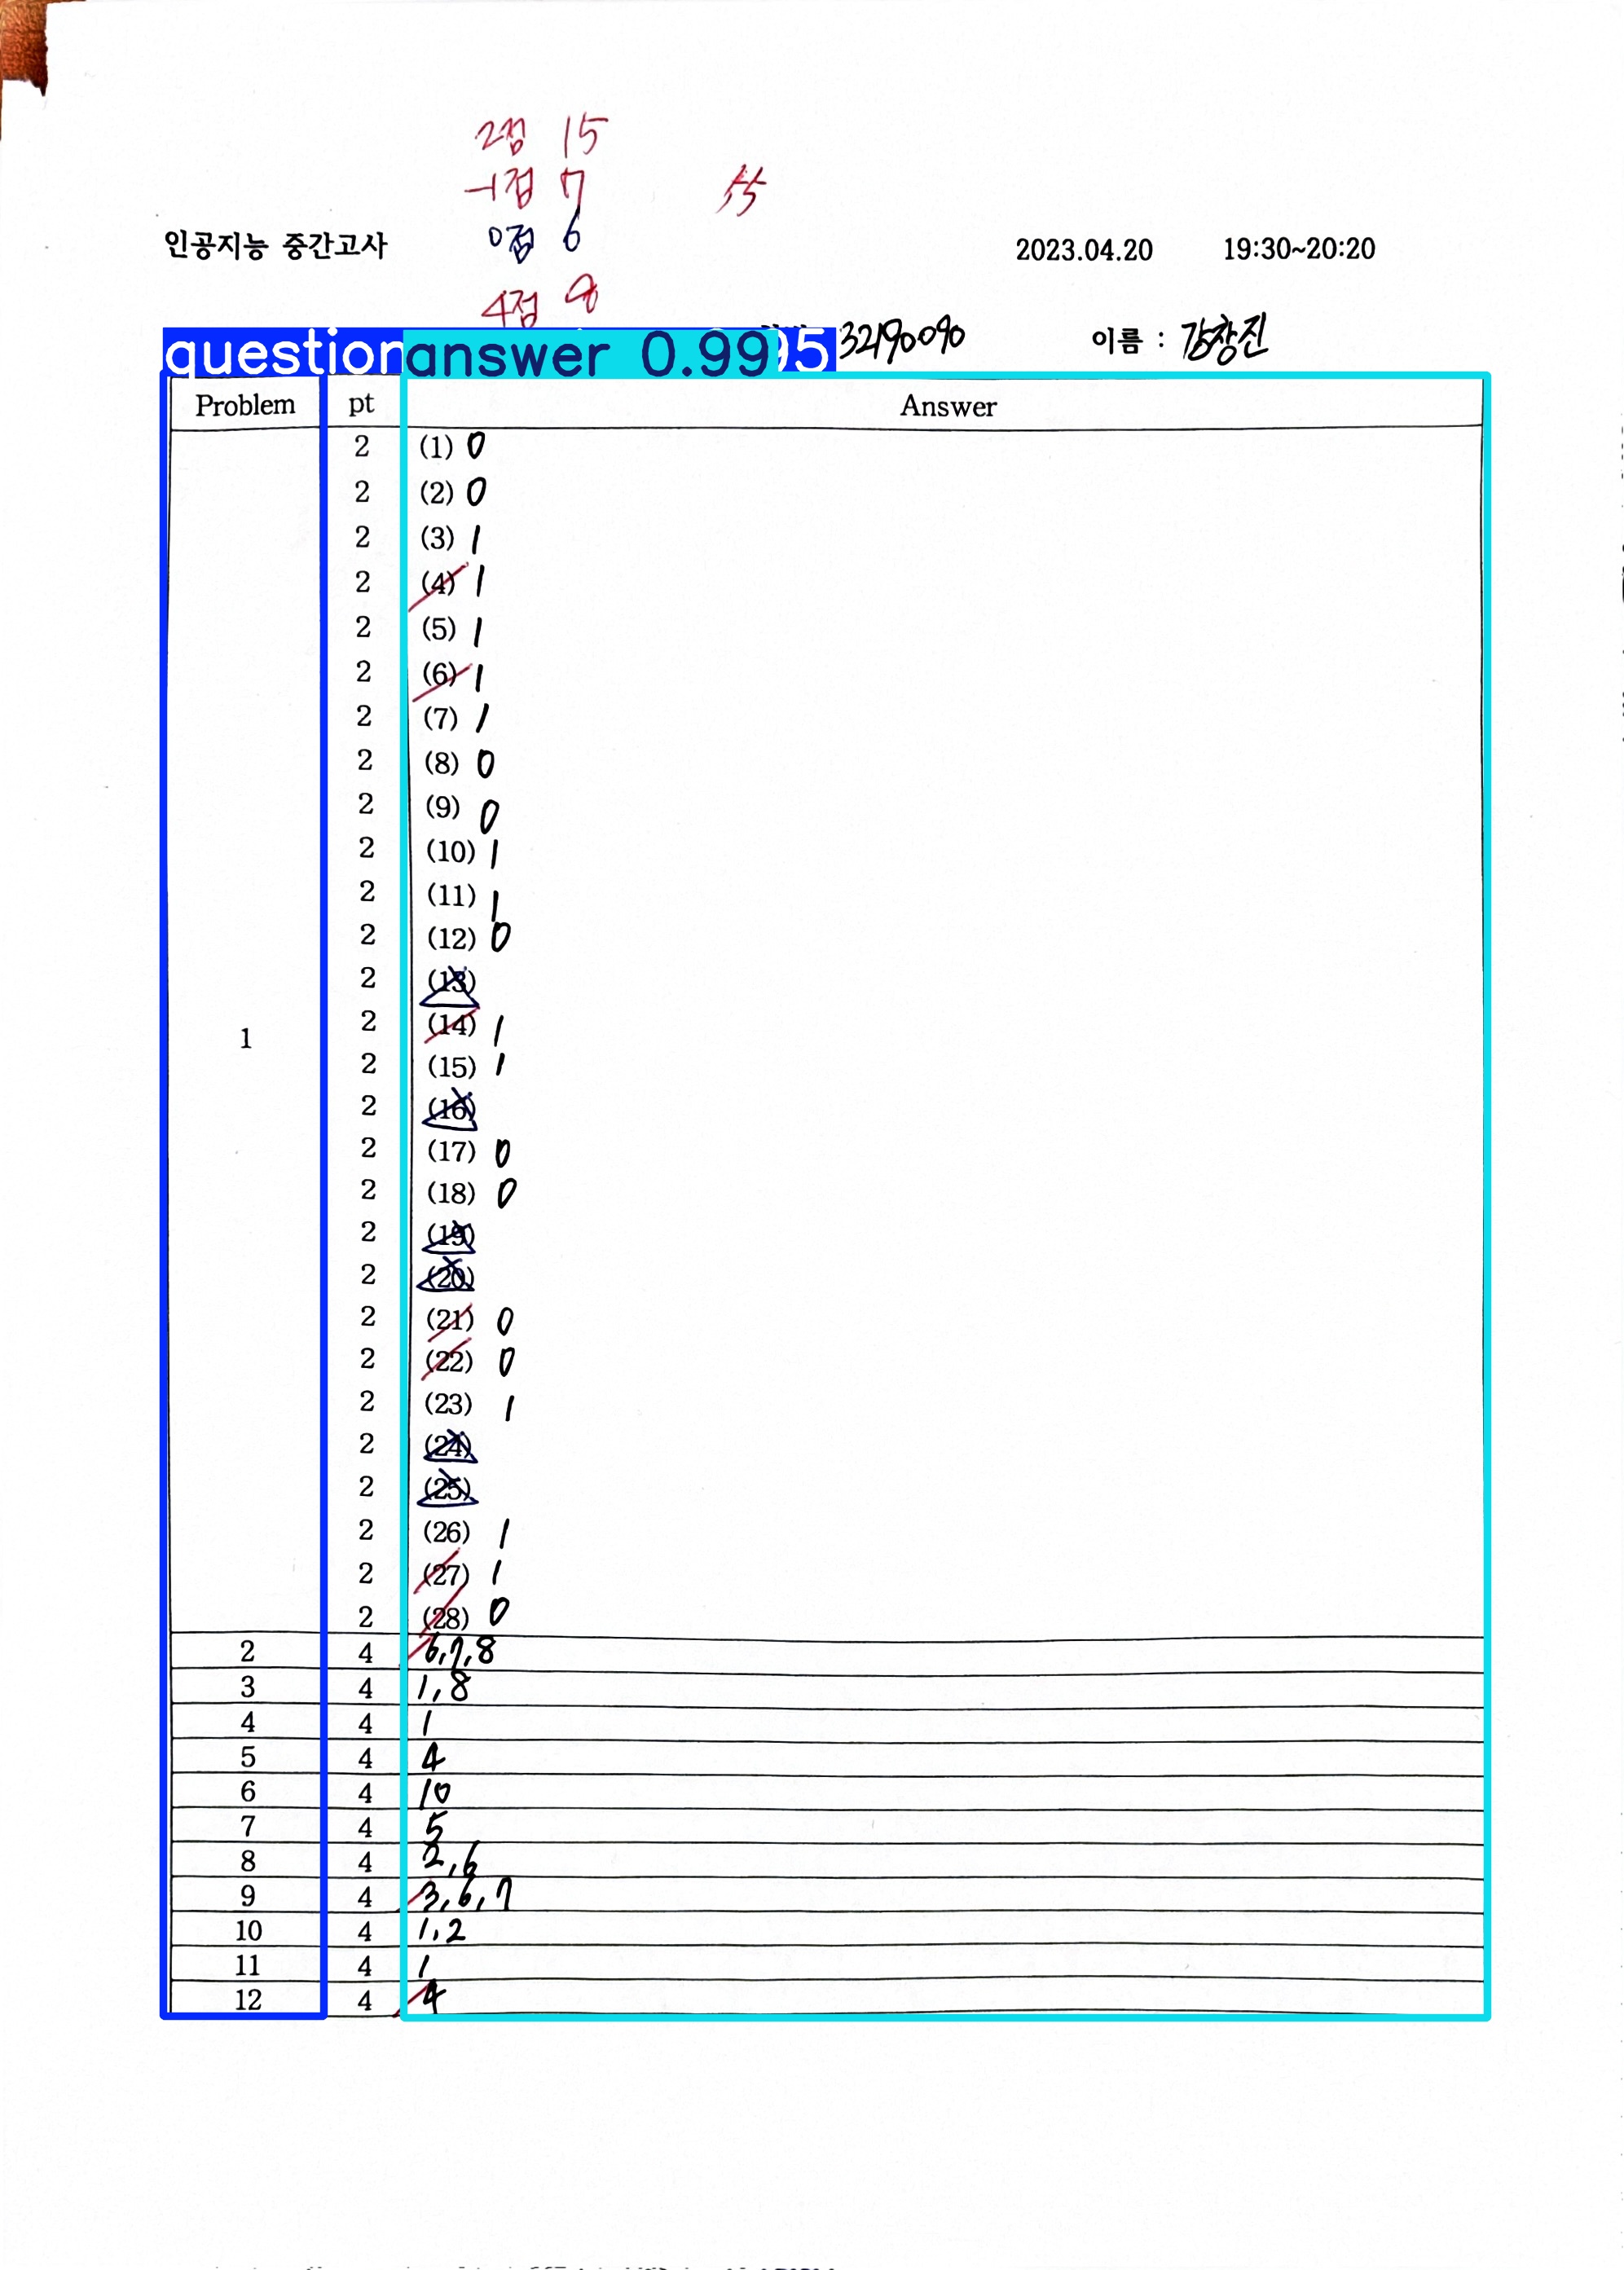 2점 15
-1점 7
55
인공지능 중간고사
0점 6
2023.04.20 19:30~20:20
4점 8
question answer 0.99 95 32190090 이름 : 강창진
Problem pt Answer
2 (1) 0
2 (2) 0
2 (3) 1
2 (4) 1
2 (5) 1
2 (6) 1
2 (7) 1
2 (8) 0
2 (9) 0
2 (10) 1
2 (11) 1
2 (12) 0
2 (13)
1 2 (14) 1
2 (15) 1
2 (16)
2 (17) 0
2 (18) 0
2 (19)
2 (20)
2 (21) 0
2 (22) 0
2 (23) 1
2 (24)
2 (25)
2 (26) 1
2 (27) 1
2 (28) 0
2 4 6,7,8
3 4 1,8
4 4 1
5 4 4
6 4 10
7 4 5
8 4 2,6
9 4 3,6,7
10 4 1,2
11 4 1
12 4 4